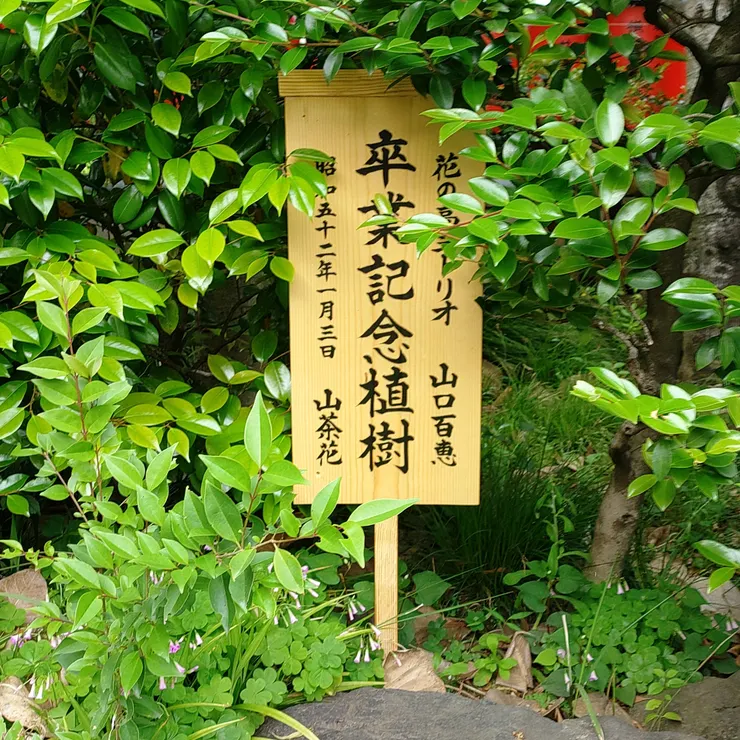 花の 山口百恵
卒業記念植樹
昭和五十二年一月三日 山茶花